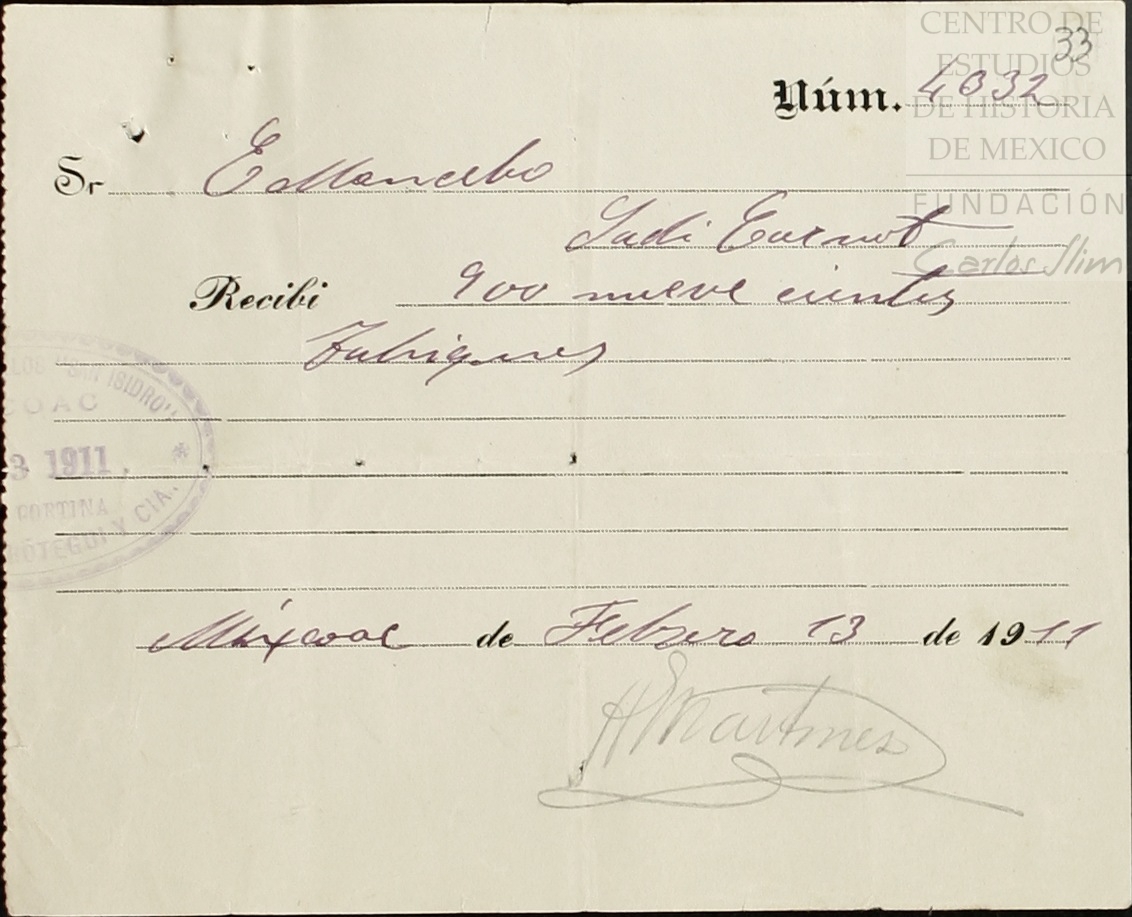 CENTRO DE
ESTUDIOS
DE HISTORIA
DE MEXICO
FUNDACIÓN
Carlos Slim
33
Núm. 4032
Sr E Mancebo
Sadi Carnot
Recibi 900 nueve cientos
Tabiques
"SAN ISIDRO"
COAC
3 1911.
CORTINA
Y CIA.
Mixcoac de Febrero 13 de 1911
H Martines